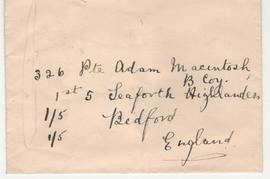 326 Pte Adam Macintosh
B Coy.
1st 5 Seaforth Highlanders
1/5 Bedford
1/5 England